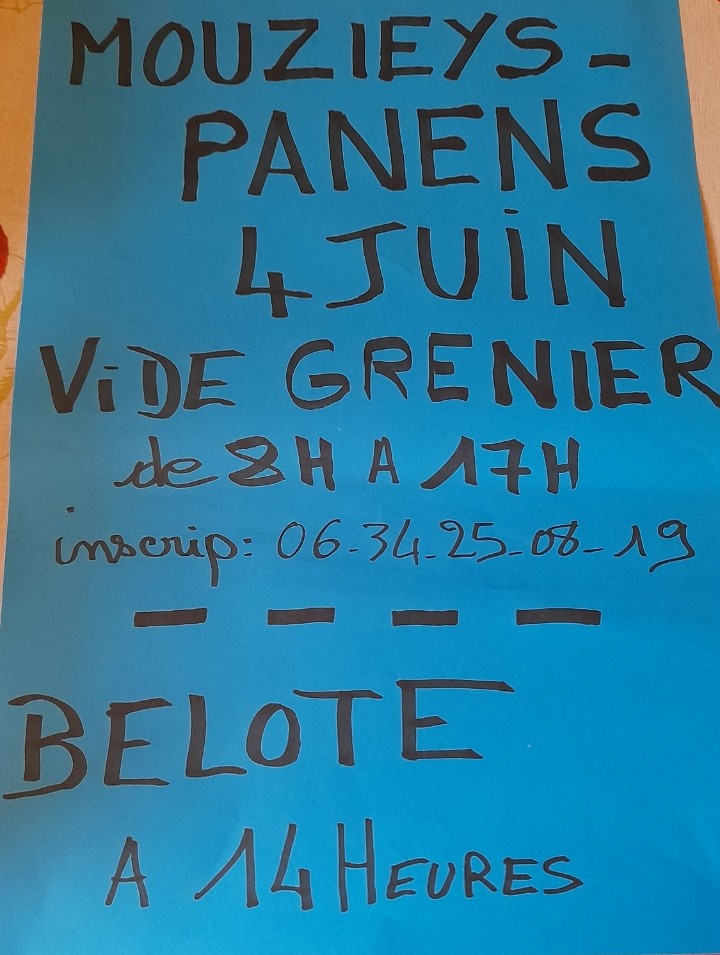 MOUZIEYS-
PANENS
4 JUIN
ViDE GRENIER
de 8H A 17H
inscrip: 06-34-25-08-19
- - - -
BELOTE
A 14 HEURES